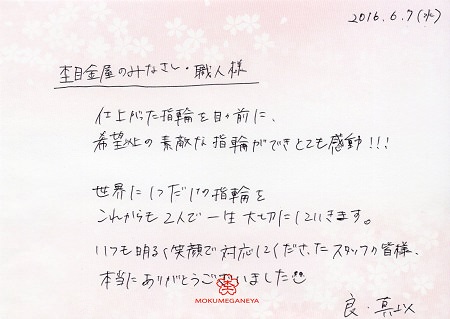 2016.6.7(火)
杢目金屋のみなさい・職人様
仕上がった指輪を目の前に、
希望以上の素敵な指輪ができとても感動!!!
世界に1つだけの指輪を
これからも2人で一生大切にしていきます。
いつも明るく笑顔で対応してくださったスタッフの皆様、
本当にありがとうございました
MOKUMEGANEYA
良・真